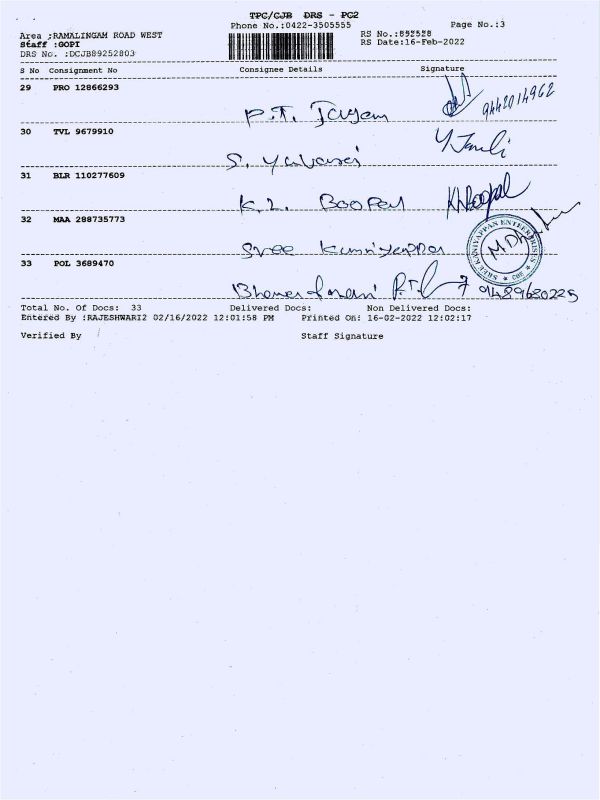 TPC/CJB DRS - PC2
Phone No.:0422-3505555 Page No.:3
Area :RAMALINGAM ROAD WEST RS No.:892528
Staff :GOPI RS Date:16-Feb-2022
DRS No. :DCJB89252803
S No Consignment No Consignee Details Signature
29 PRO 12866293
P.T. 9442014962
30 TVL 9679910
S.
31 BLR 110277609
K.L. Boopal K.L.Boopal
32 MAA 288735773
Sree SREE KANIYAPPAN ENTERPRISES CBE
33 POL 3689470
9489680225
Total No. Of Docs: 33 Delivered Docs: Non Delivered Docs:
Entered By :RAJESHWARI2 02/16/2022 12:01:58 PM Printed On: 16-02-2022 12:02:17
Verified By Staff Signature